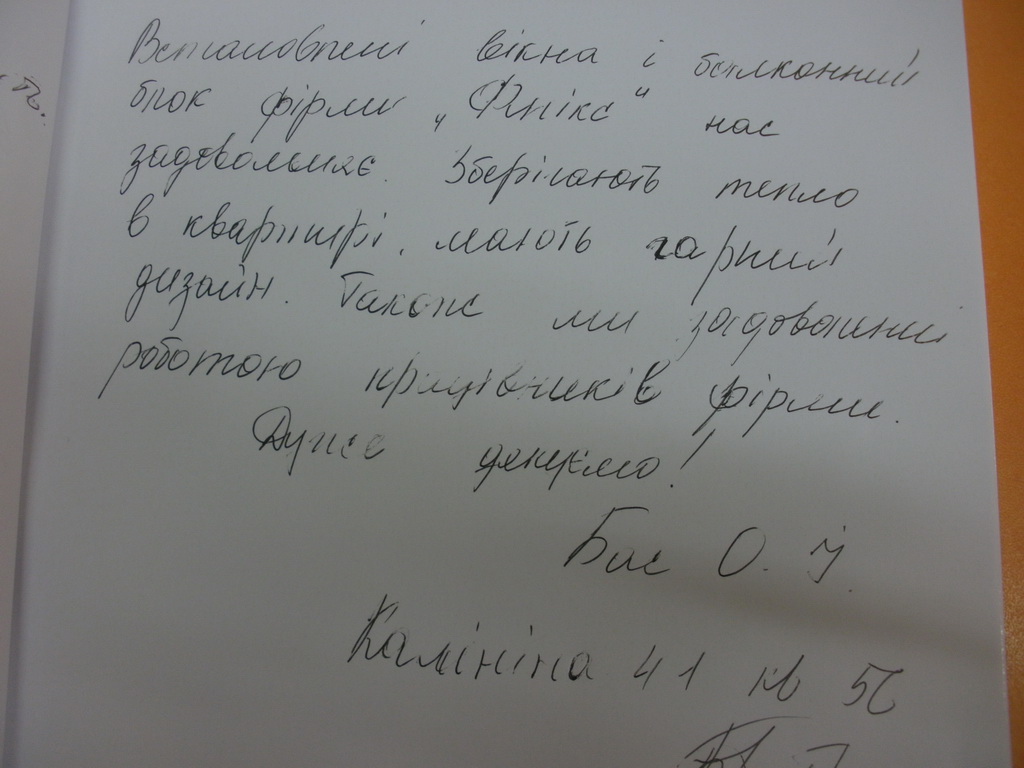 Встановлені вікна і балконний
блок фірми „Фенікс" нас
задовольняє. Зберігають тепло
в квартирі, мають гарний
дизайн. Також ми задоволені
роботою працівників фірми.
Дуже дякуємо!
Бас О. І.
Калініна 41 кв 56